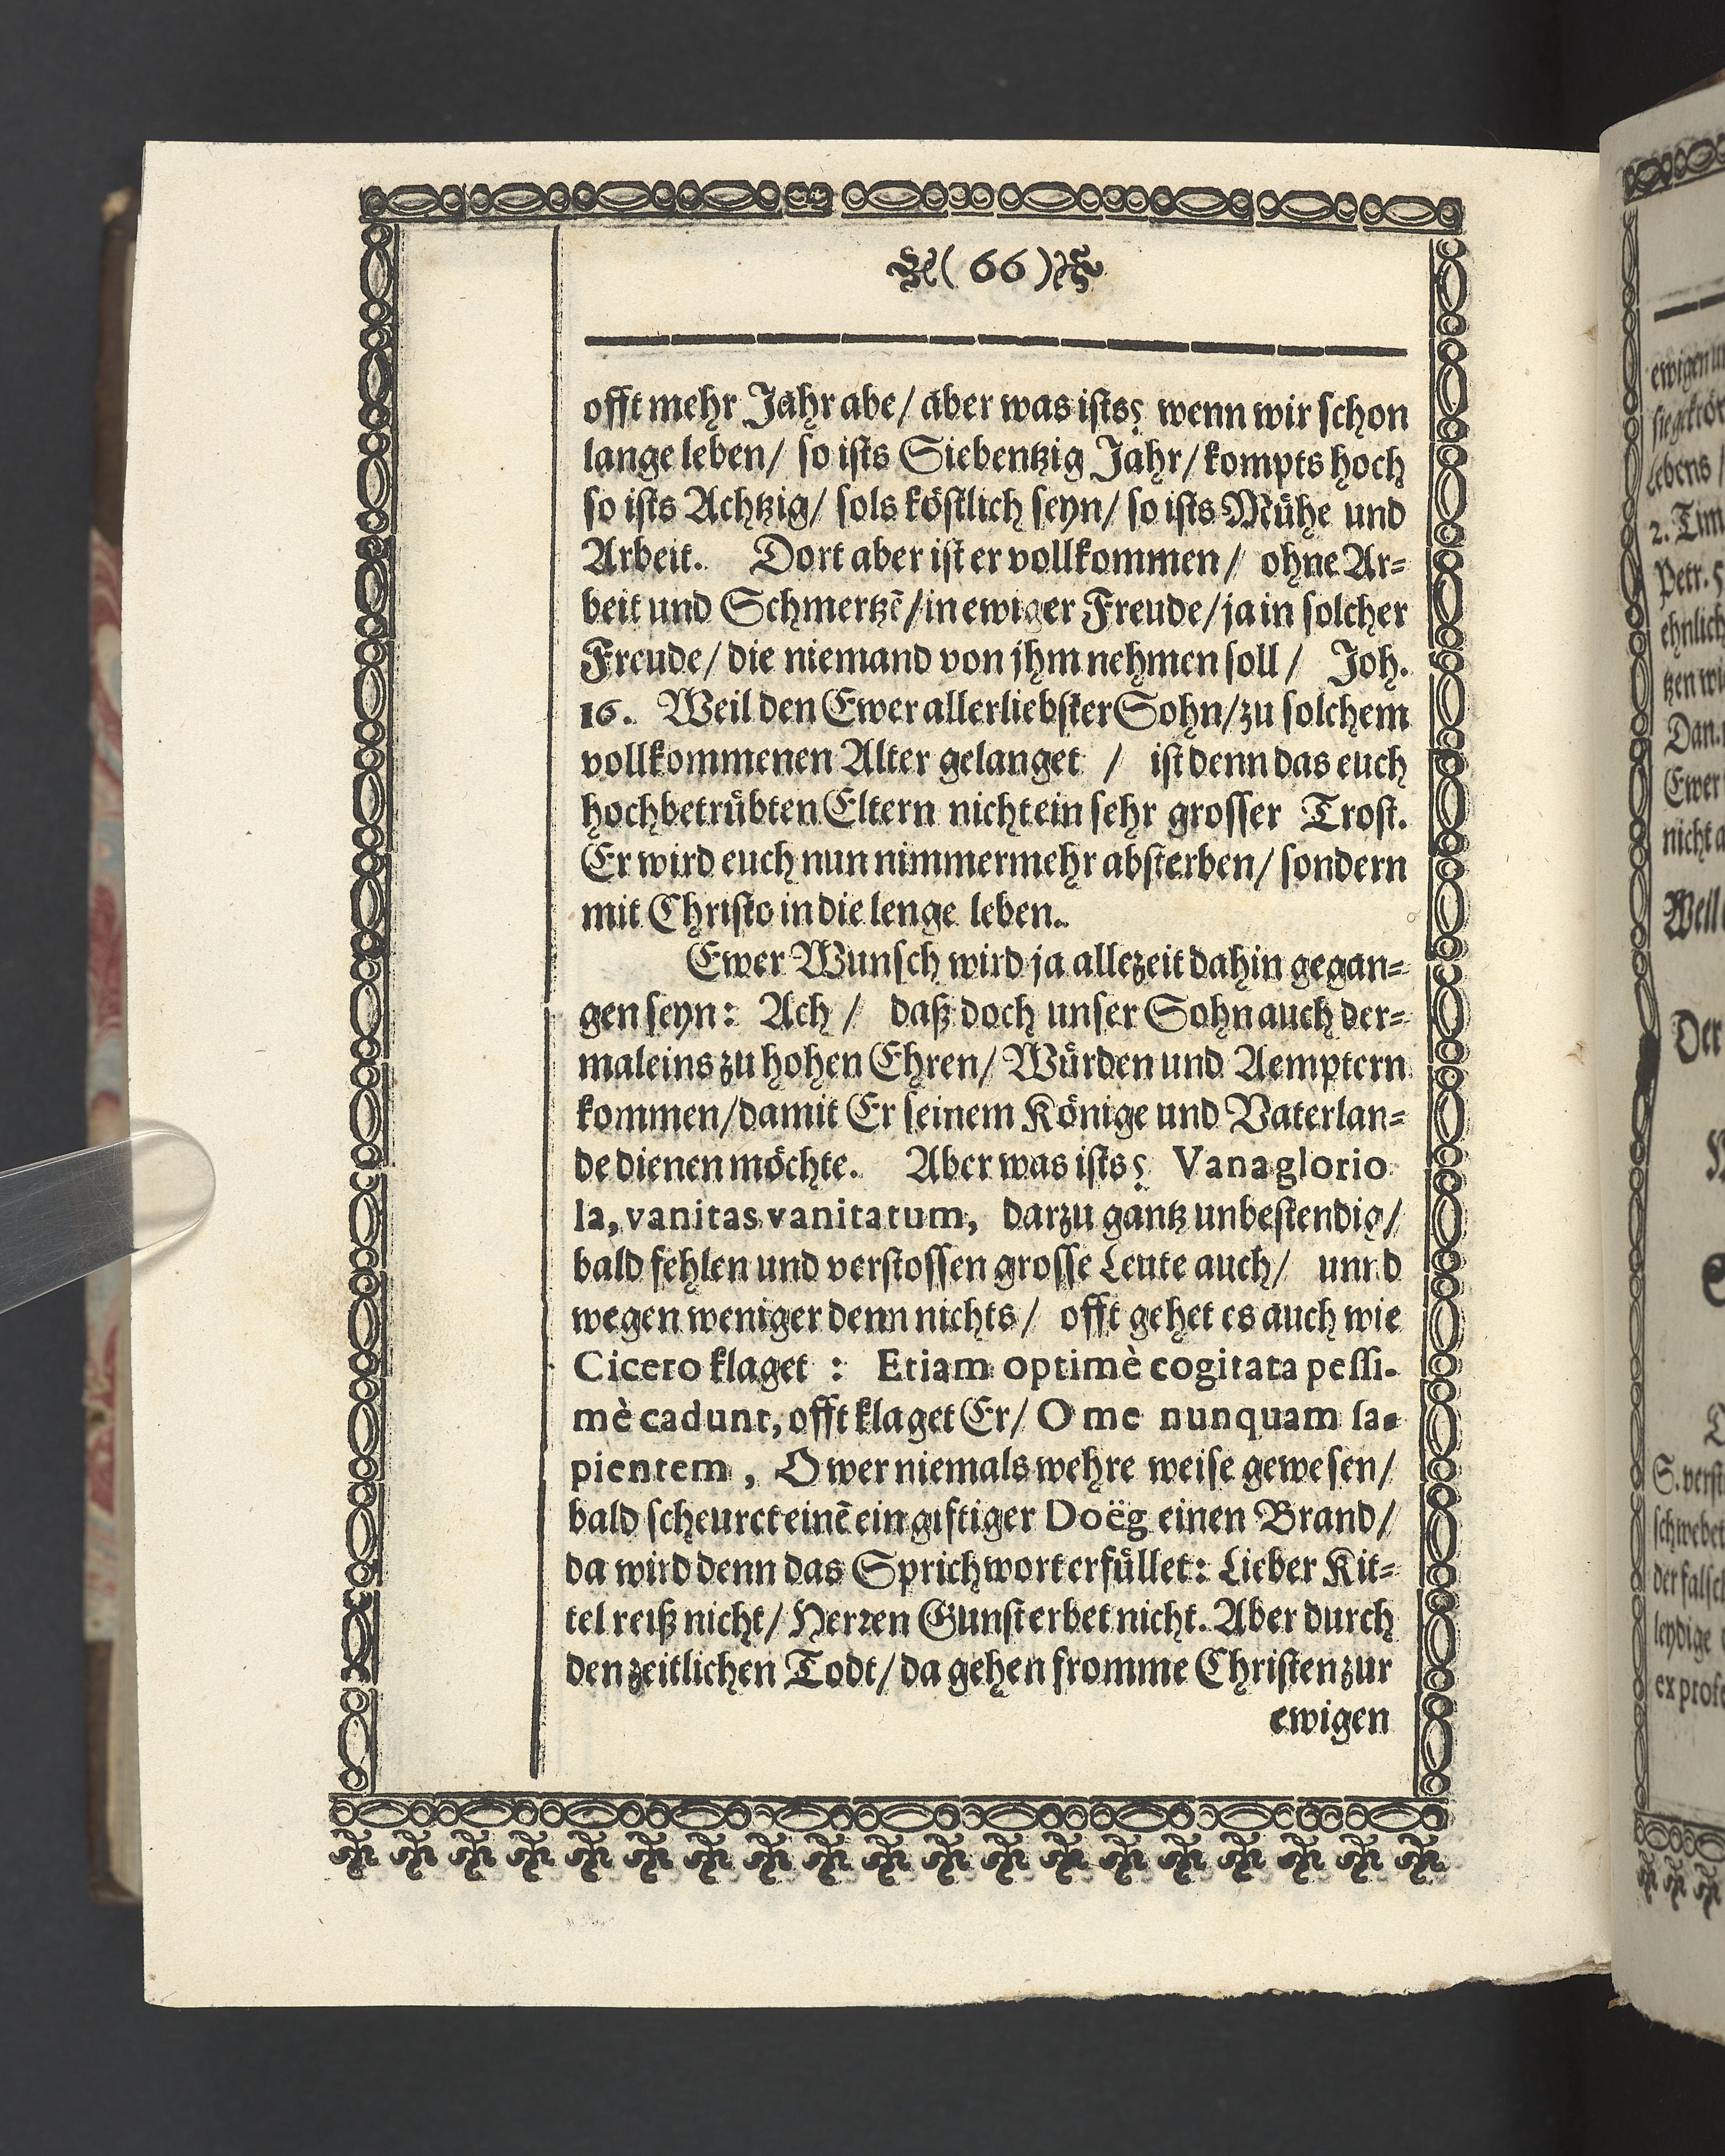 (66)
offt mehr Jahr abe/ aber was ists? wenn wir schon
lange leben/ so ists Siebentzig Jahr/ kompts hoch
so ists Achtzig/ sols köstlich seyn/ so ists Mühe und
Arbeit. Dort aber ist er vollkommen/ ohne Ar=
beit und Schmertzē/in ewiger Freude/ja in solcher
Freude/ die niemand von jhm nehmen soll/ Joh.
16. Weil den Ewer allerliebster Sohn/zu solchem
vollkommenen Alter gelanget / ist denn das euch
hochbetrübten Eltern nicht ein sehr grosser Trost.
Er wird euch nun nimmermehr absterben/ sondern
mit Christo in die lenge leben.
Ewer Wunsch wird ja allezeit dahin gegan=
gen seyn: Ach/ daß doch unser Sohn auch der=
maleins zu hohen Ehren/ Würden und Aemptern
kommen/damit Er seinem Könige und Vaterlan=
de dienen möchte. Aber was ists? Vana glorio
la, vanitas vanitatum, darzu gantz unbestendig/
bald fehlen und verstossen grosse Leute auch/ unnd
wegen weniger denn nichts/ offt gehet es auch wie
Cicero klaget : Etiam optimè cogitata pessi-
mè cadunt, offt klaget Er/ O me nunquam sa-
pientem, O wer niemals wehre weise gewesen/
bald scheuret einē ein giftiger Doëg einen Brand/
da wird denn das Sprichwort erfüllet: Lieber Kit=
tel reiß nicht/ Herren Gunst erbet nicht. Aber durch
den zeitlichen Todt/ da gehen fromme Christen zur
ewigen